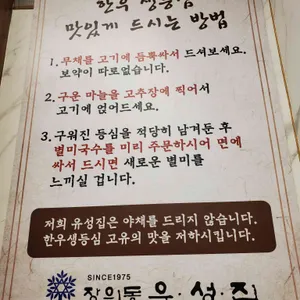 한우 생등심
맛있게 드시는 방법
1. 무채를 고기에 듬뿍싸서 드셔보세요.
보약이 따로없습니다.
2. 구운 마늘을 고추장에 찍어서
고기에 얹어드세요.
3. 구워진 등심을 적당히 남겨둔 후
별미국수를 미리 주문하시어 면에
싸서 드시면 새로운 별미를
느끼실 겁니다.
저희 유성집은 야채를 드리지 않습니다.
한우생등심 고유의 맛을 저하시킵니다.
SINCE1975
장위동 유·성·집